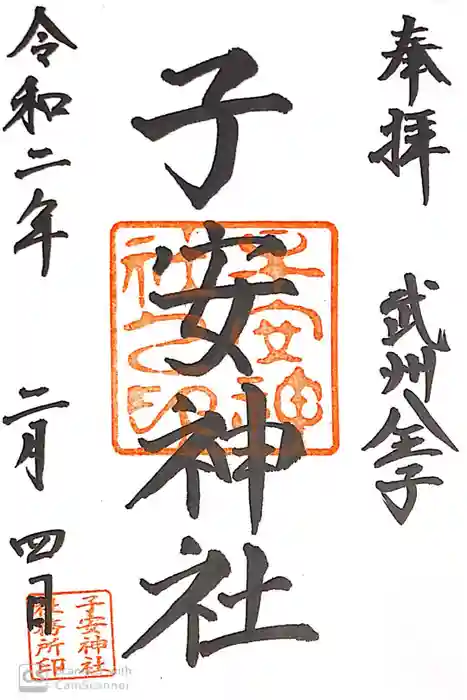 奉拝
武州八王子
子安神社
子安神社印
令和二年
二月
四日
子安神社
社務所印
Scanned with
CamScanner